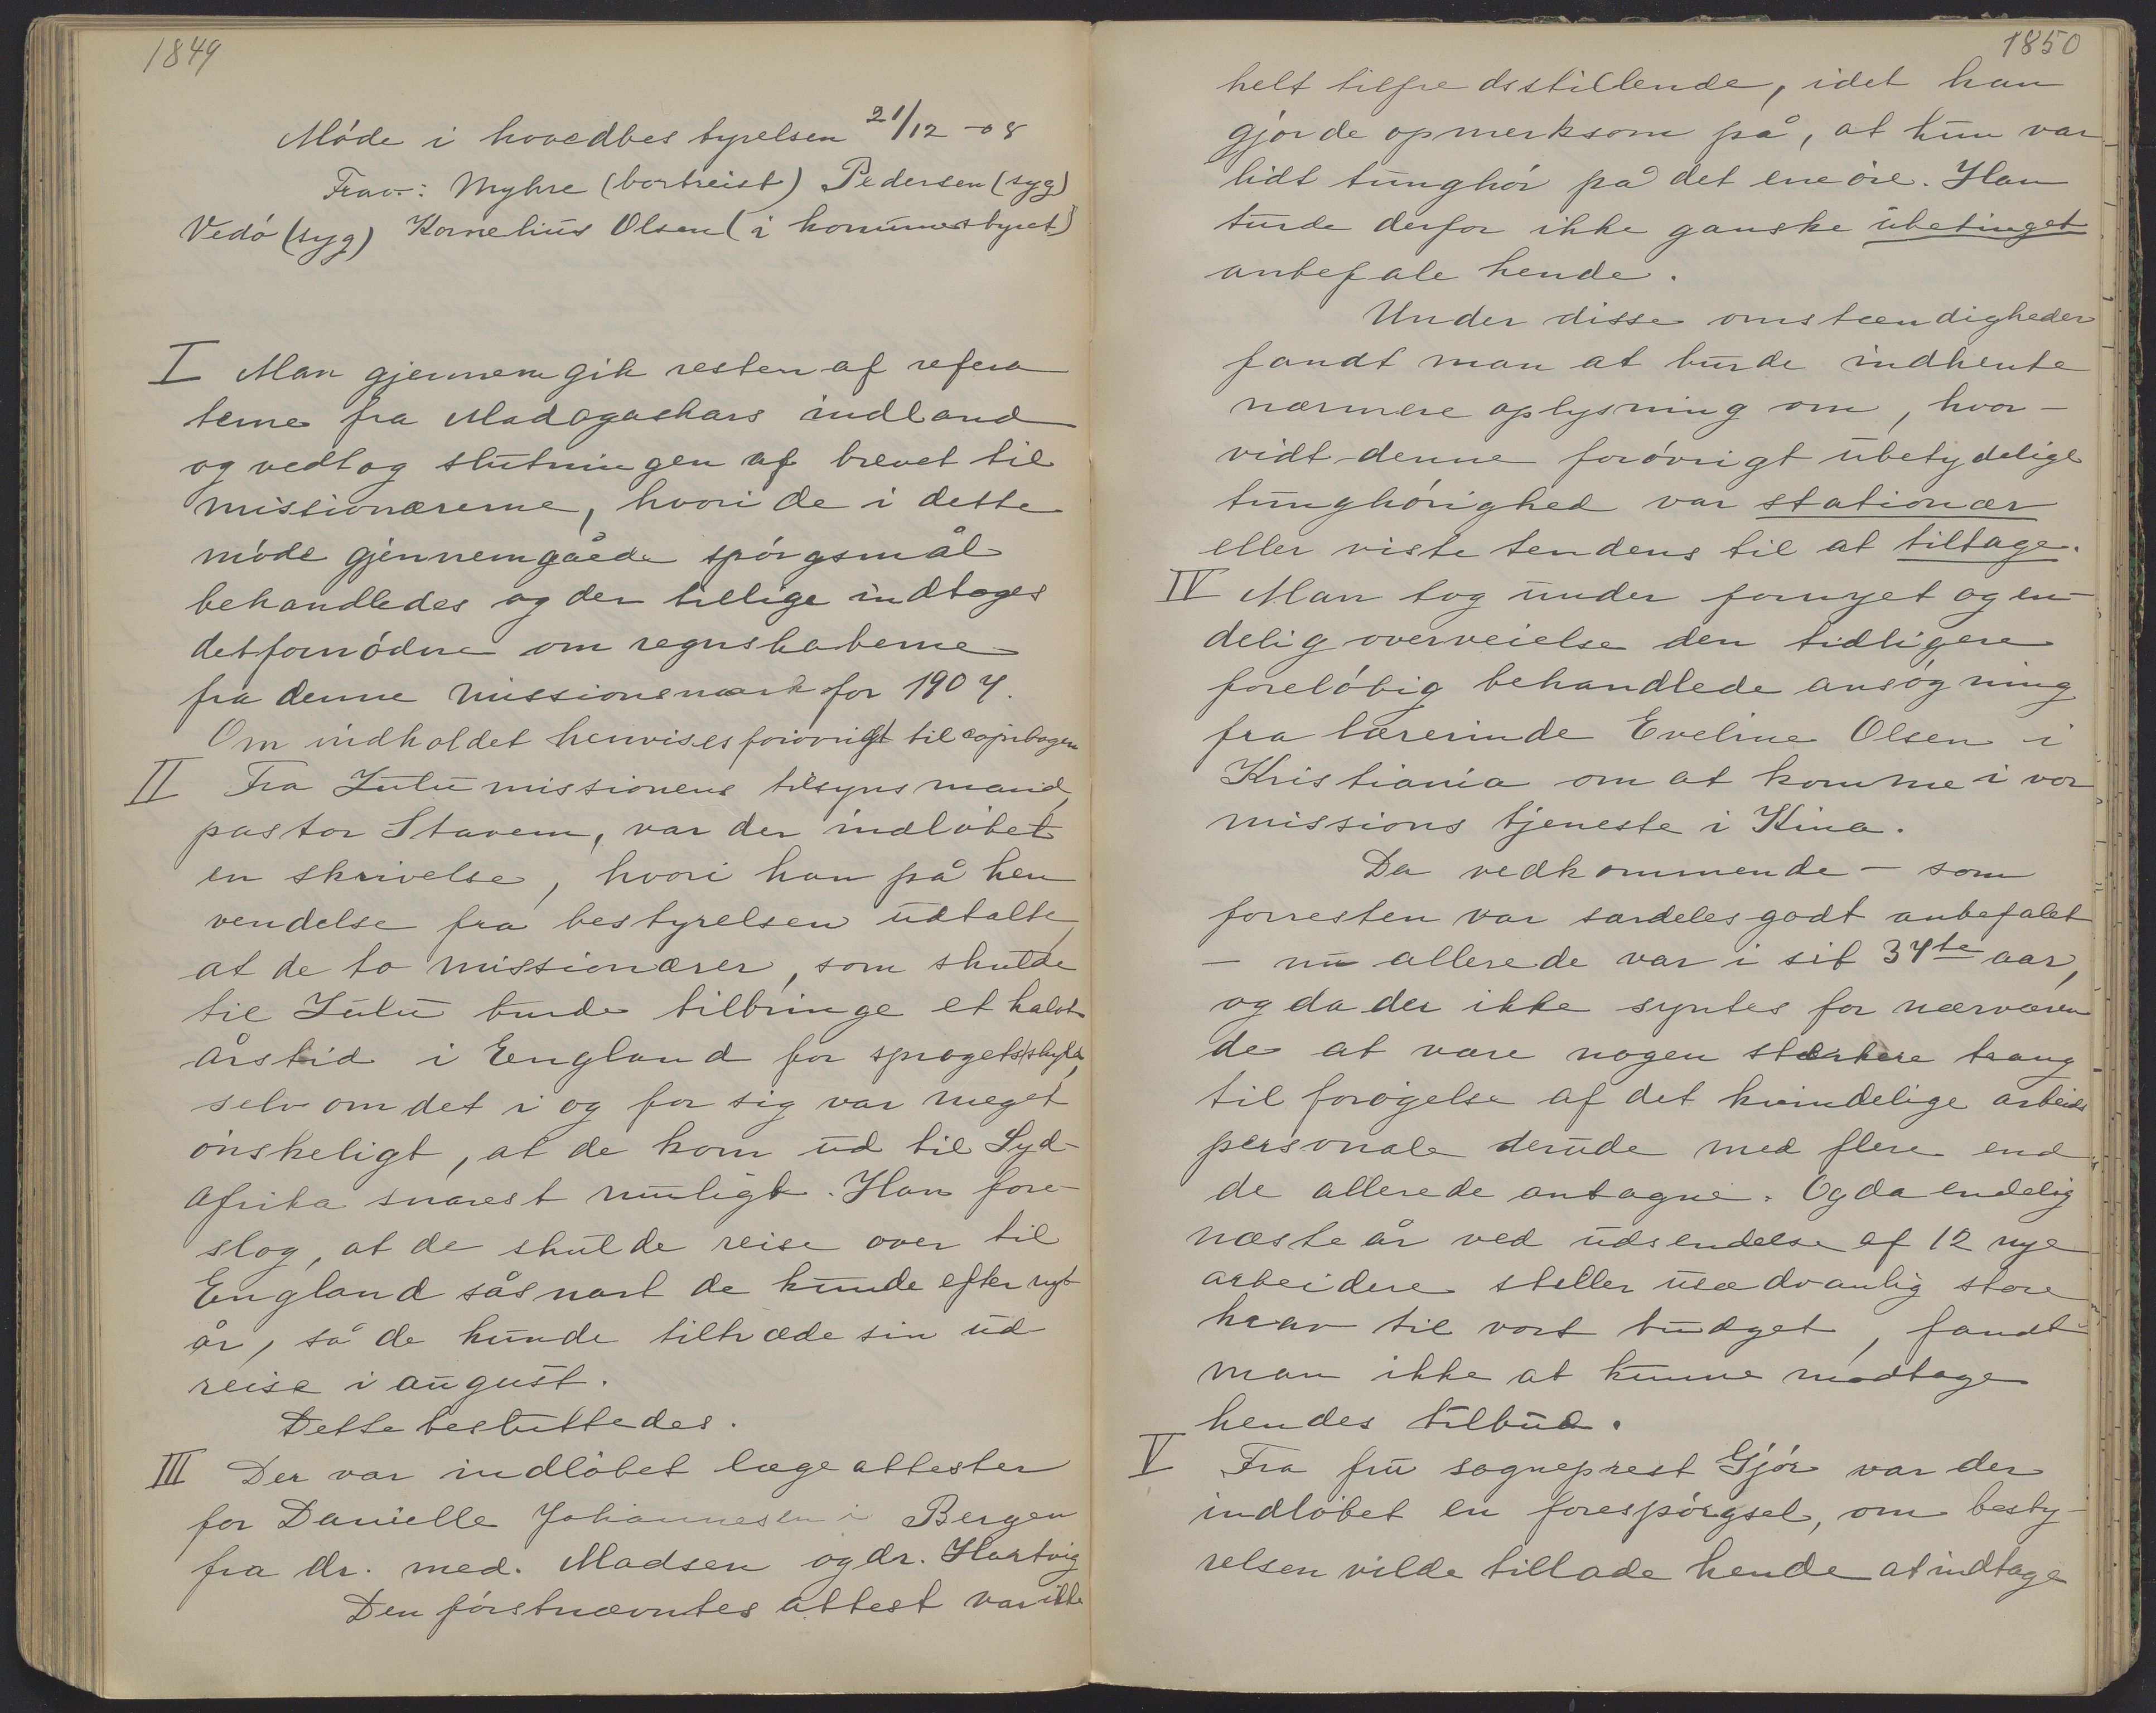 1849
Møde i hovedbestyrelsen 21/12 -08
Frav.: Myhre (bortreist) Pedersen (syg)
Vedø (syg) Kornelius Olsen (i kommunestyret)
I Man gjennemgik resten af refera
terne fra Madagaskars indland
og vedtog slutningen af brevet til
missionærerne, hvori de i dette
møde gjennemgåede spørgsmål
behandledes og der tillige indtoges
det fornødne om regnskaberne
fra denne missionsmark for 1907.
Om indholdet henvises forøvrigt til copibogen
II Fra Zulumissionens tilsynsmand,
pastor Stavem, var der indløbet
en skrivelse, hvori han på hen
vendelse fra bestyrelsen udtalte,
at de to missionærer, som skulde
til Zulu burde tilbringe et halvt
årstid i England for sprogets skyld,
selv om det i og for sig var meget
ønskeligt, at de kom ud til Syd-
afrika snarest muligt. Han fore-
slog, at de skulde reise over til
England såsnart de kunde efter nyt
år, så de kunde tiltræde sin ud
reise i august.
Dette besluttedes.
III Der var indløbet lægeattester
for Danielle Johannesen i Bergen
fra dr. med. Madsen og dr. Hartvig
Den førstnævntes attest var ikke
1850
helt tilfredsstillende, idet han
gjorde opmerksom på, at hun var
lidt tunghør på det ene øre. Han
turde derfor ikke ganske ubetinget
anbefale hende.
Under disse omstændigheder
fandt man at burde indhente
nærmere oplysning om, hvor-
vidt denne forøvrigt ubetydelige
tunghørighed var stationær
eller viste tendens til at tiltage.
IV Man tog under fornyet og en-
delig overveielse den tidligere
foreløbig behandlede ansøgning
fra lærerinde Eveline Olsen i
Kristiania om at komme i vor
missions tjeneste i Kina.
Da vedkommende - som
forresten var særdeles godt anbefalet
- nu allerede var i sit 34te aar,
og da der ikke syntes for nærværen
de at være nogen stærkere trang
til forøgelse af det kvindelige arbeids
personale derude med flere end
de allerede antagne. Og da endelig
næste år ved udsendelse af 12 nye
arbeidere stiller usædvanlig store
krav til vort budget, fandt
man ikke at kunne modtage
hendes tilbud.
V Fra fru sogneprest Gjør var der
indløbet en forespørgsel, om besty-
relsen vilde tillade hende at indtage